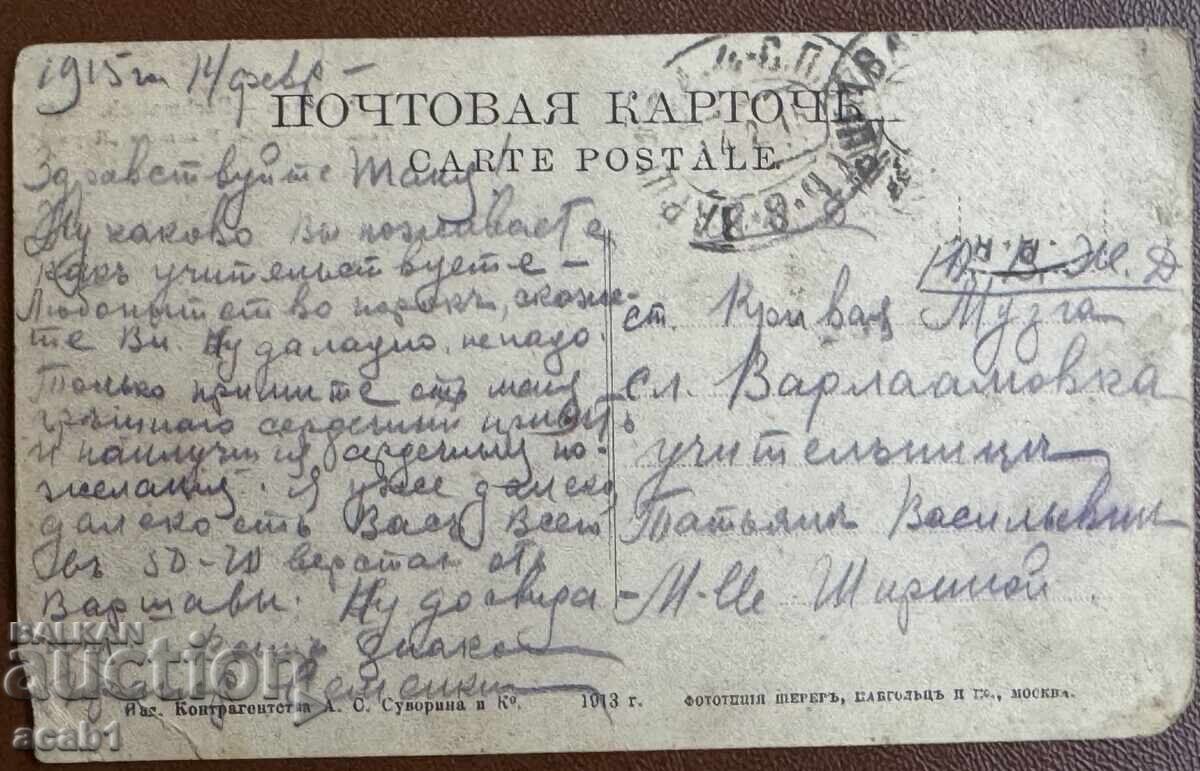 1915 г. 14 февр –
ПОЧТОВАЯ КАРТОЧК
CARTE POSTALE
Здравствуйте Таня!
Ну каково Вы поживаете
какъ учительствуете –
Любопытство порокъ, скаже-
те Вы. Ну да ладно, ненадо.
Только примите отъ меня
грѣшнаго сердечный привѣтъ
и наилучшія сердечныя по-
желанія. Я уже далеко
далеко отъ Васъ Всего
въ 50-70 верстах отъ
Варшавы. Ну досвида-
Вашъ
Ж. Д
ст. Кривая Музга
сл. Варлаамовка
учительницѣ
Татьянѣ Васильевнѣ
М-lle Шириной
Изд. Контрагентства А. С. Суворина и Ко. 1913 г. ФОТОТИПІЯ ШЕРЕРЪ, НАБГОЛЬЦЪ И Ко., МОСКВА.
BALKAN
auction
acab1